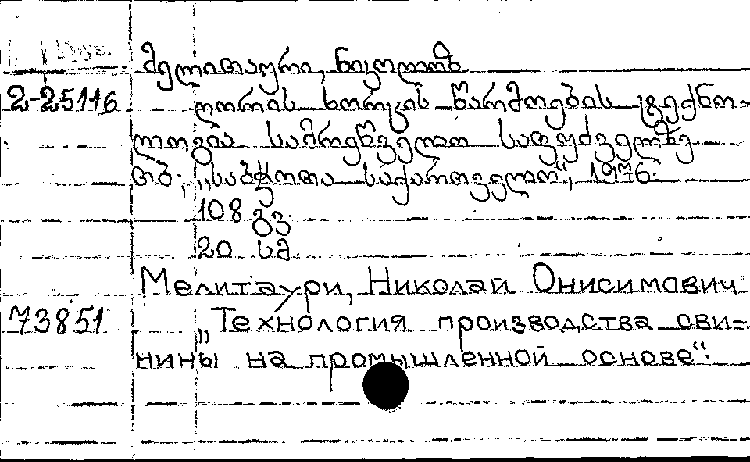 მელითაური, ნიკოლოზ
2-25116 ღორის ხორცის წარმოების ტექნო-
ლოგია სამრეწველო საფუძველზე
თბ., „საბჭოთა საქართველო“, 1976.
108 გვ.
20 სმ
Мелитаури, Николай Онисимович
73851 „Технология производства сви-
нины на промышленной основе“.